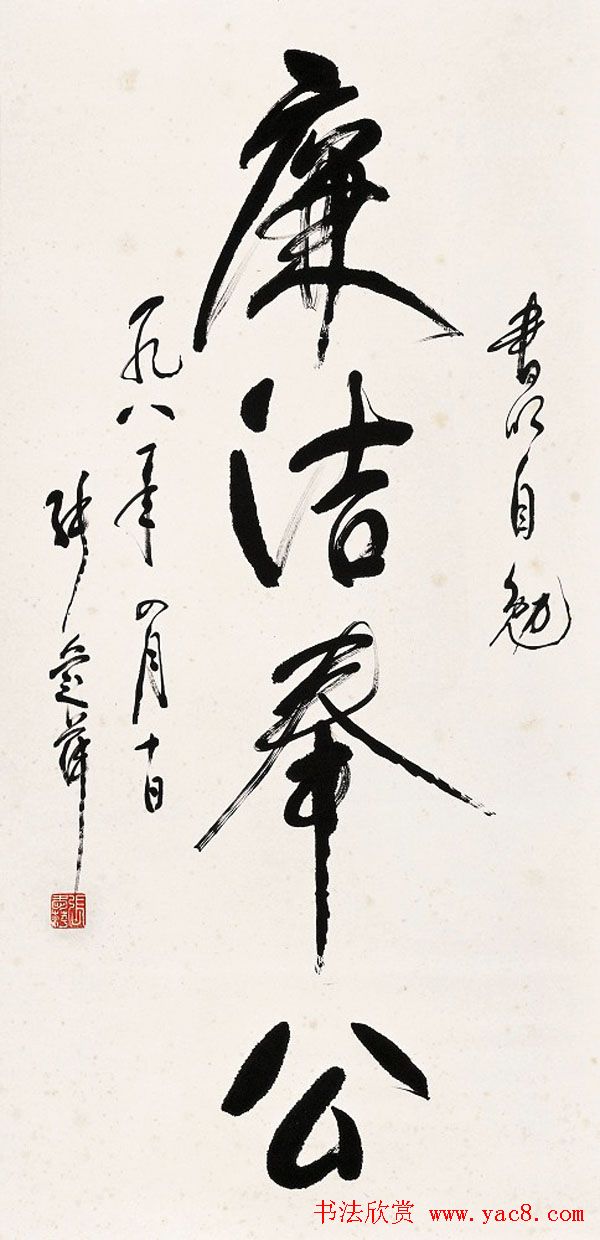 書以自勉
廉洁奉公
一九八一年四月十日
张爱萍
书法欣赏 www.yac8.com